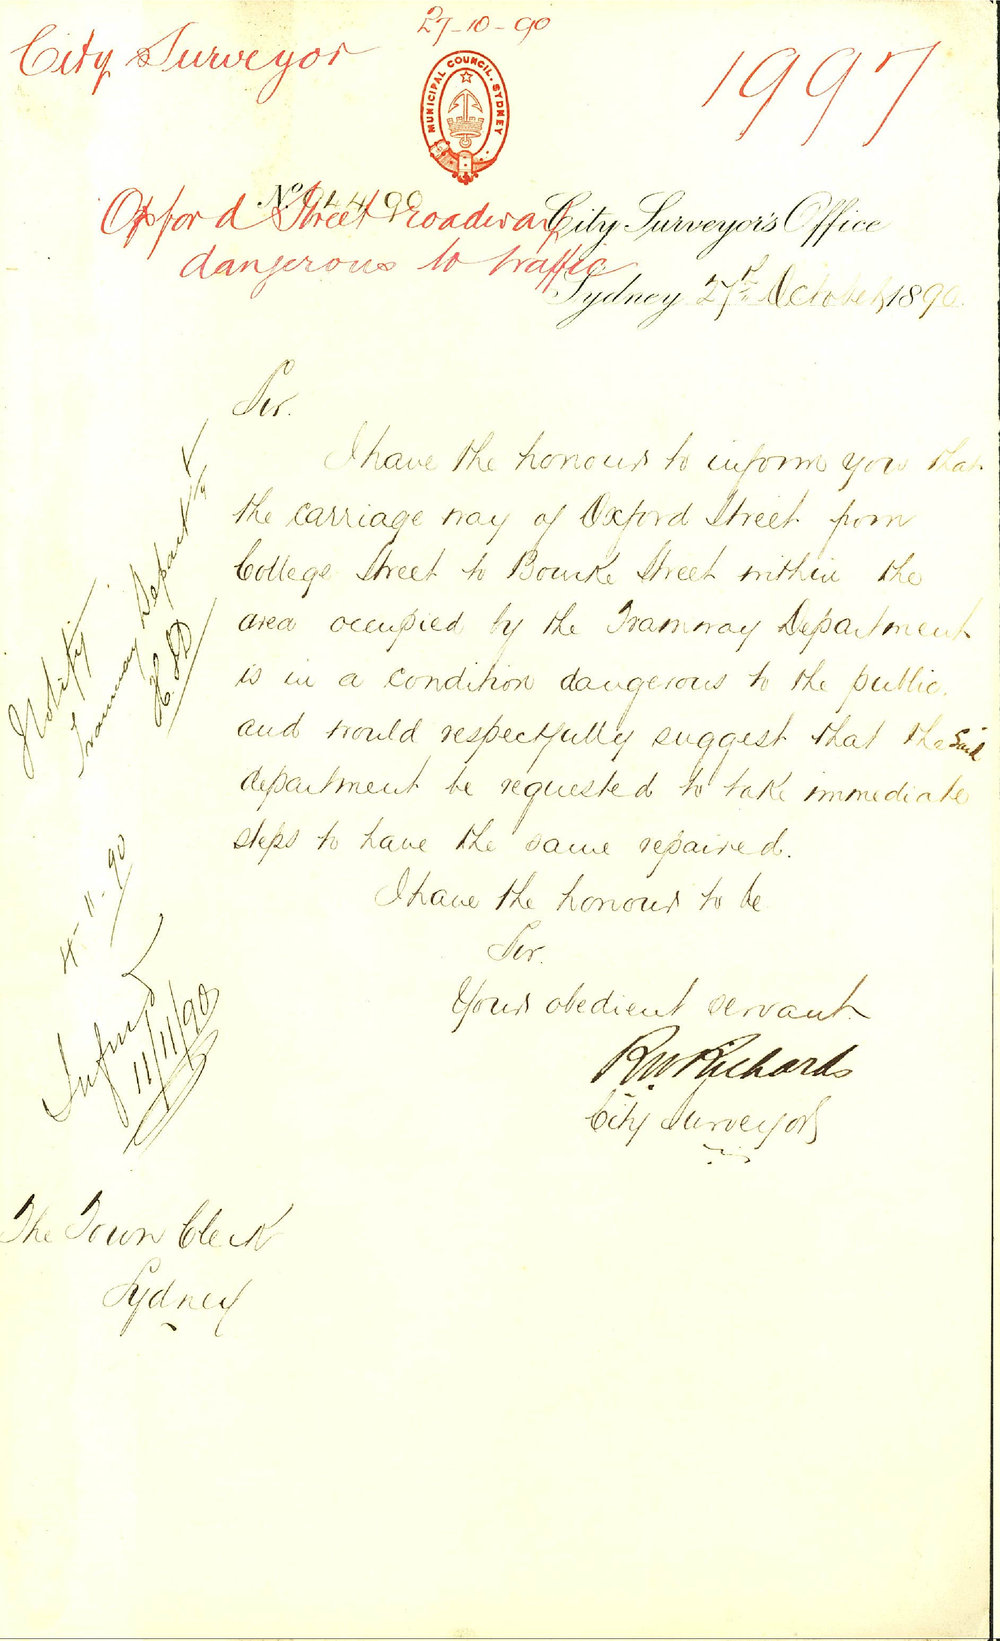 27-10-90
City Surveyor
1997
MUNICIPAL COUNCIL. SYDNEY
No.
Oxford Street roadway
dangerous to traffic
City Surveyor's Office
Sydney 27th October 1890
Sir.
I have the honour to inform you that
the carriage way of Oxford Street from
College Street to Bourke Street within the
area occupied by the Tramway Department
is in a condition dangerous to the public.
and would respectfully suggest that the said
department be requested to take immediate
steps to have the same repaired.
I have the honour to be
Sir.
Your obedient servant
R W Richards
City Surveyor
Notify
Tramway Department
4-11-90
Informed
11/11/90
The Town Clerk
Sydney